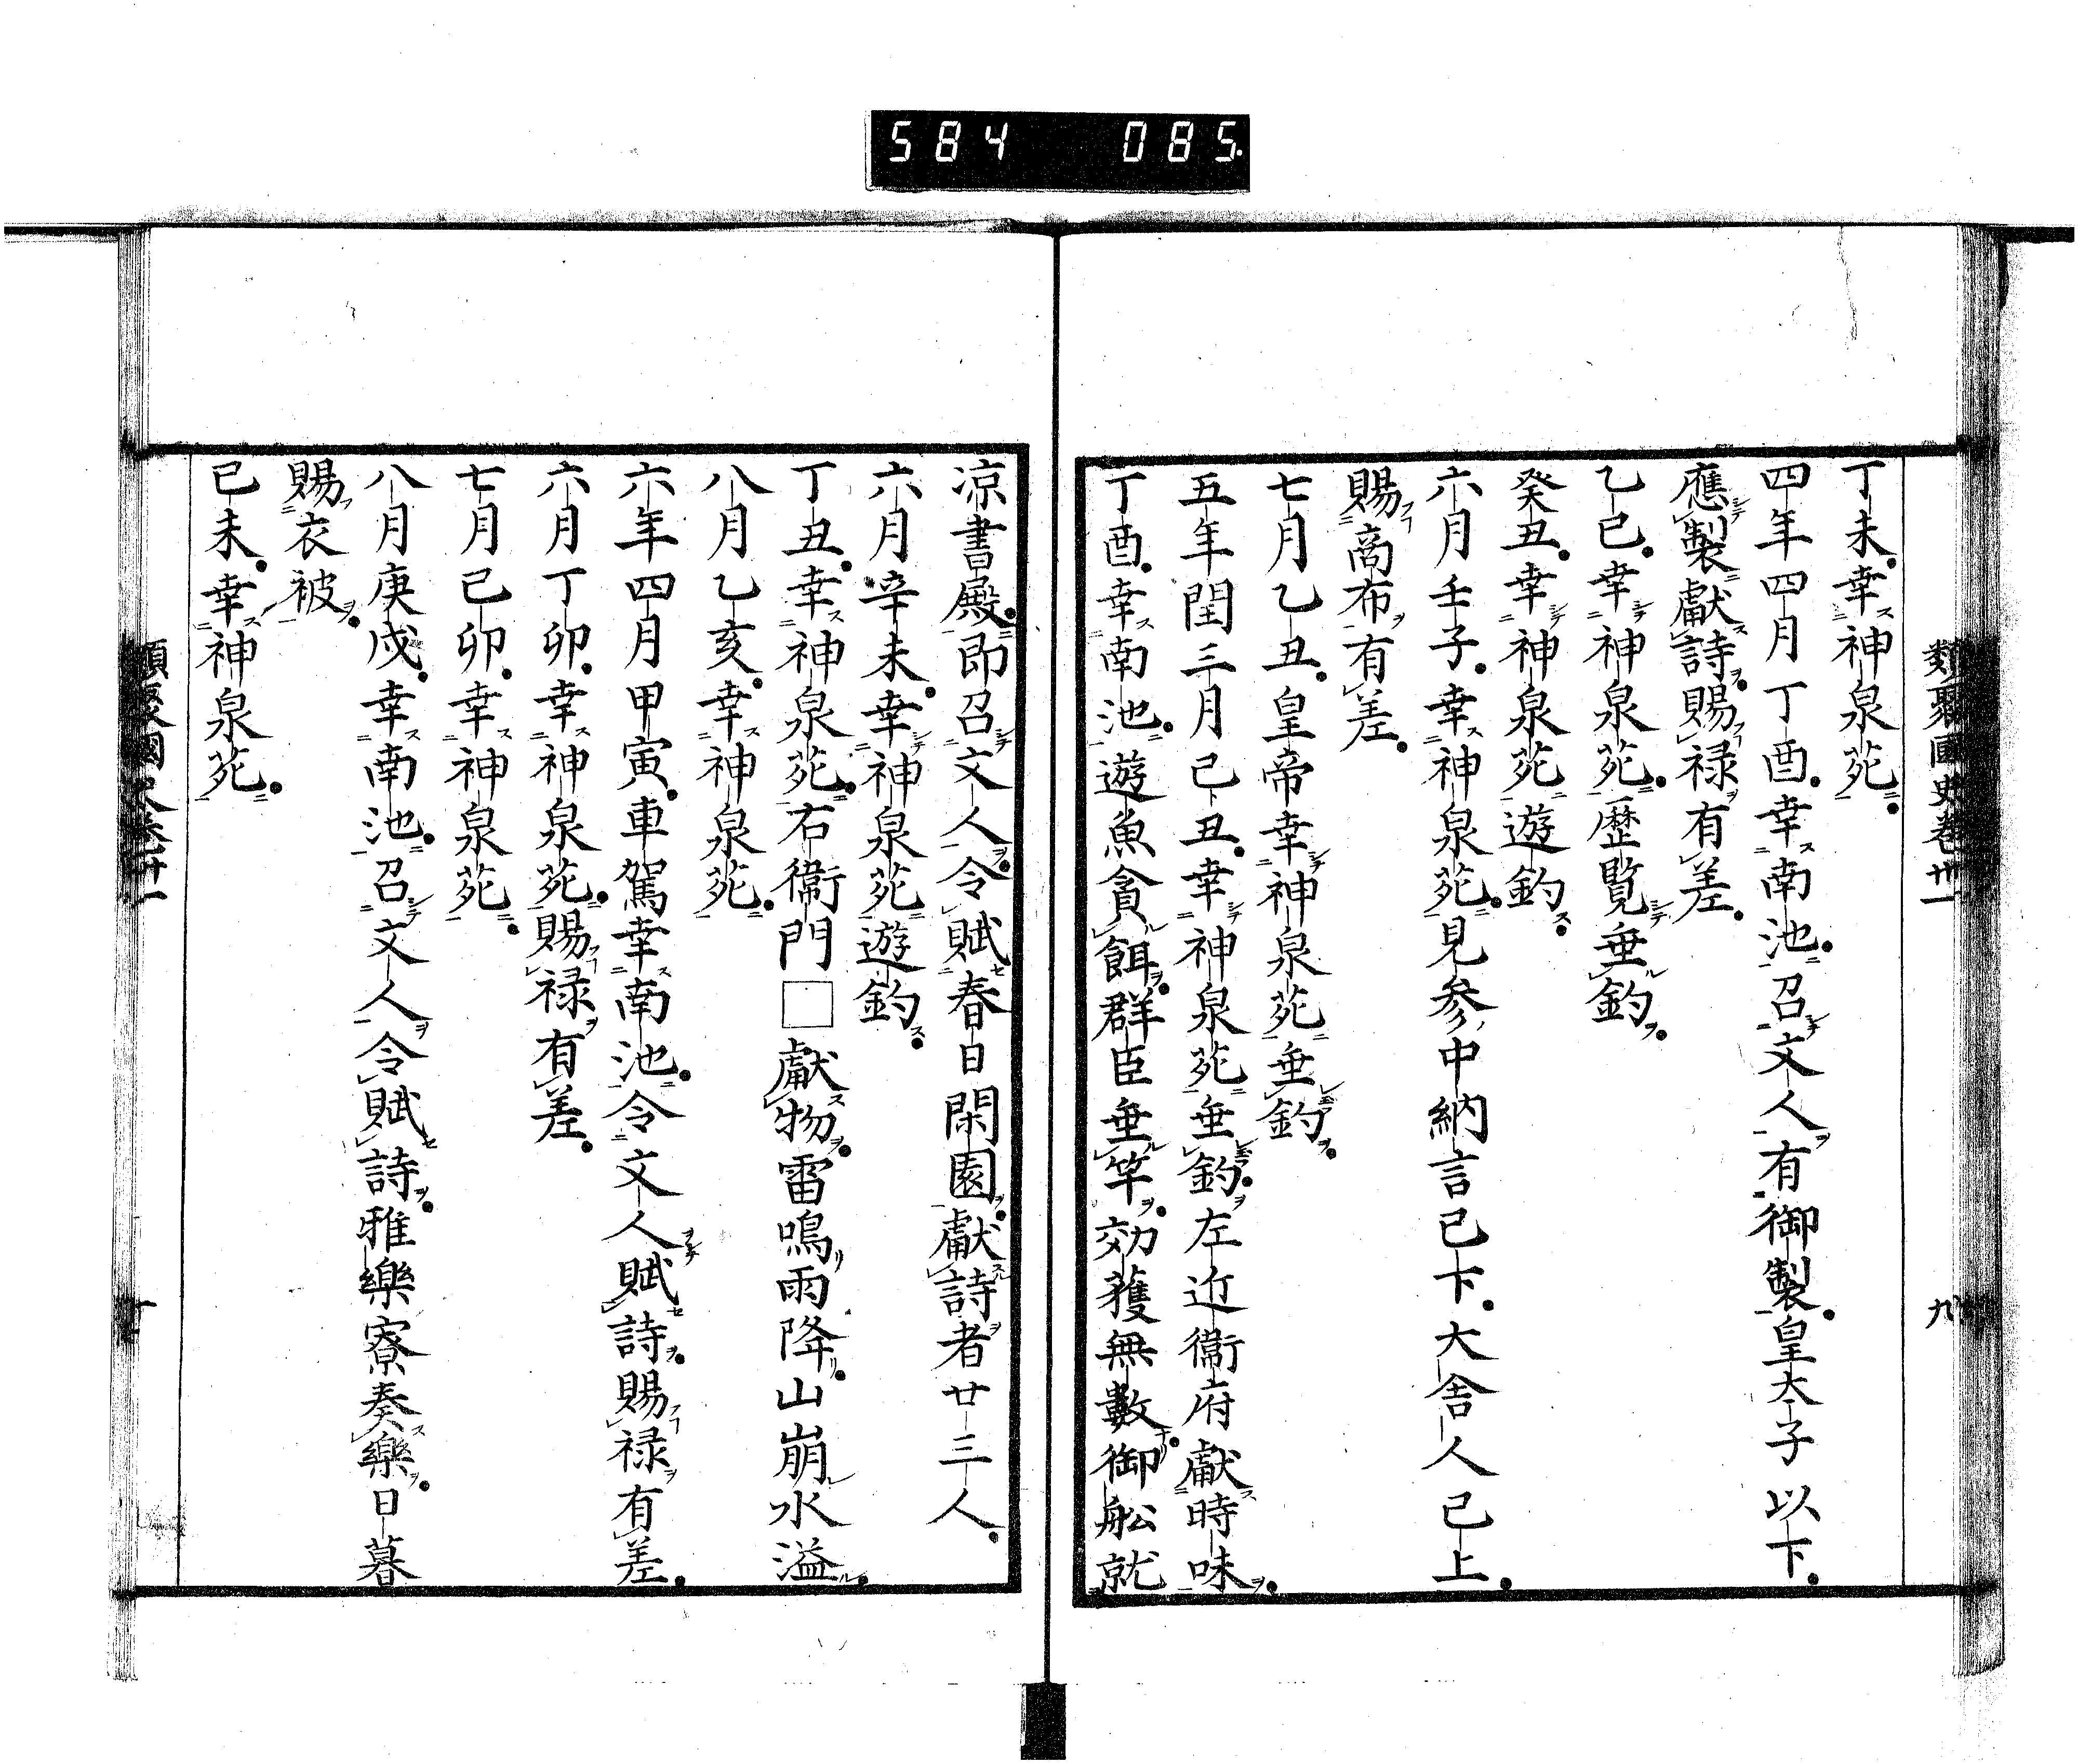 584 085
類聚國史卷卅一 九
丁未。幸神泉苑。
四年四月丁酉。幸南池。召文人有御製。皇太子以下。
應製獻詩。賜禄有差。
乙巳。幸神泉苑。歷覧垂釣。
癸丑。幸神泉苑遊釣。
六月壬子。幸神泉苑。見參中納言已下。大舎人已上。
賜商布有差。
七月乙丑。皇帝幸神泉苑垂釣。
五年閏三月己丑。幸神泉苑垂釣。左近衞府獻時味。
丁酉。幸南池。遊魚貪餌。群臣垂竿。効獲無數。御舩就
凉書殿。即召文人。令賦春日閑園。獻詩者廿三人。
六月辛未。幸神泉苑遊釣。
丁丑。幸神泉苑。右衞門□獻物。雷鳴雨降。山崩水溢。
八月乙亥。幸神泉苑。
六年四月甲寅。車駕幸南池。令文人賦詩。賜禄有差。
六月丁卯。幸神泉苑。賜禄有差。
七月己卯。幸神泉苑。
八月庚戌。幸南池。召文人令賦詩。雅樂寮奏樂。日暮
賜衣被。
己未。幸神泉苑。
類聚國史卷卅一 十